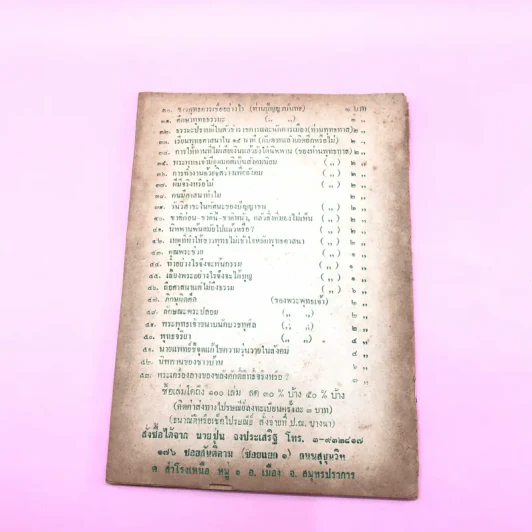 ๓๐. ชาวพุทธควรเชื่ออย่างไร (ท่านปัญญานันทะ) ๒ บาท
๓๑. ศึกษาพุทธธรรม ( ,, ,, ) ๓ ,,
๓๒. ธรรมะประเภท ข้าราชการและนักการเมือง (ท่านพุทธทาส) ๒ ,,
๓๓. เรียนพุทธศาสนาใน ๑๕ นาที ๒ ,,
๓๔. การให้ทานที่ไม่เสียเงินแม้ยังได้นิพพาน (ของท่านพุทธทาส) ๒ ,,
๓๕. พระพุทธเจ้ามีอุดมคติเป็นสังคมนิยม ( ,, ) ๒ ,,
๓๖. การทำงานด้วยจิตว่างเพื่อสังคม ( ,, ) ๒ ,,
๓๗. ผีมีจริงหรือไม่ ( ,, ) ๒ ,,
๓๘. คนมีศาสนาทำไม ๒ ,,
๓๙. วันวิสาขะในทัศนะของปัญญาชน ( ,, ) ๒ ,,
๔๐. ชาติก่อน-ชาตินี้-ชาติหน้า, ( ,, ) ๒ ,,
๔๑. นิพพานพ้นสมัยไปแล้วหรือ? ( ,, ) ๒ ,,
๔๒. เหตุที่ทำให้ชาวพุทธไม่เข้าใจหลักพุทธศาสนา ( ,, ) ๒ ,,
๔๓. คุณพระช่วย ( ,, ) ๒ ,,
๔๔. ทำอย่างไรจึงจะพ้นกรรม ( ,, ) ๑ ,,
๔๕. เลี้ยงพระอย่างไรจึงจะได้บุญ ( ,, ) ๑ ,,
๔๖. ถือศาสนาแต่ไม่ถึงธรรม ๖ ,,
๔๗. ภิกษุเกเด็ล (ของพระพุทธเจ้า) ๒ ,,
๔๘. ลักษณะพระปลอม ( ,, ,, ) ๒ ,,
๔๙. พระพุทธเจ้าขนาบนักบวชทุศีล ( ,, ,, ) ๒ ,,
๕๐. พุทธจริยา ( ,, ,, ) ๔ ,,
๕๑. นายแพทย์ชี้จุดแก้โรคความวุ่นวายในสังคม ๔ ,,
๕๒. นิพพานของชาวบ้าน ๖ ,,
๕๓. พระเครื่องลางของขลังศักดิ์สิทธิ์จริงหรือ ? ๓ ,,
ซื้อเล่มใดถึง ๑๐๐ เล่ม ลด ๓๐ % บ้าง ๕๐ % บ้าง
(คิดค่าส่งทางไปรษณีย์ลงทะเบียนครั้งละ ๓ บาท)
(ธนาณัติหรือเช็คไปรษณีย์ สั่งจ่ายที่ ป.ณ. บางนา)
สั่งซื้อได้จาก นายปุ่น จงประเสริฐ โทร. ๓-๙๓๒๘๑๗
๑๗๖ ซอยสันติคาม (ซอยแยก ๑) ถนนสุขุมวิท
ต. สำโรงเหนือ หมู่ ๑ อ. เมือง จ. สมุทรปราการ